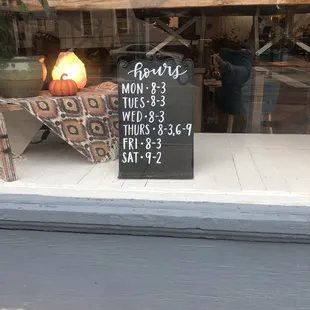 hours
MON • 8-3
TUES • 8-3
WED • 8-3
THURS • 8-3,6-9
FRI • 8-3
SAT • 9-2